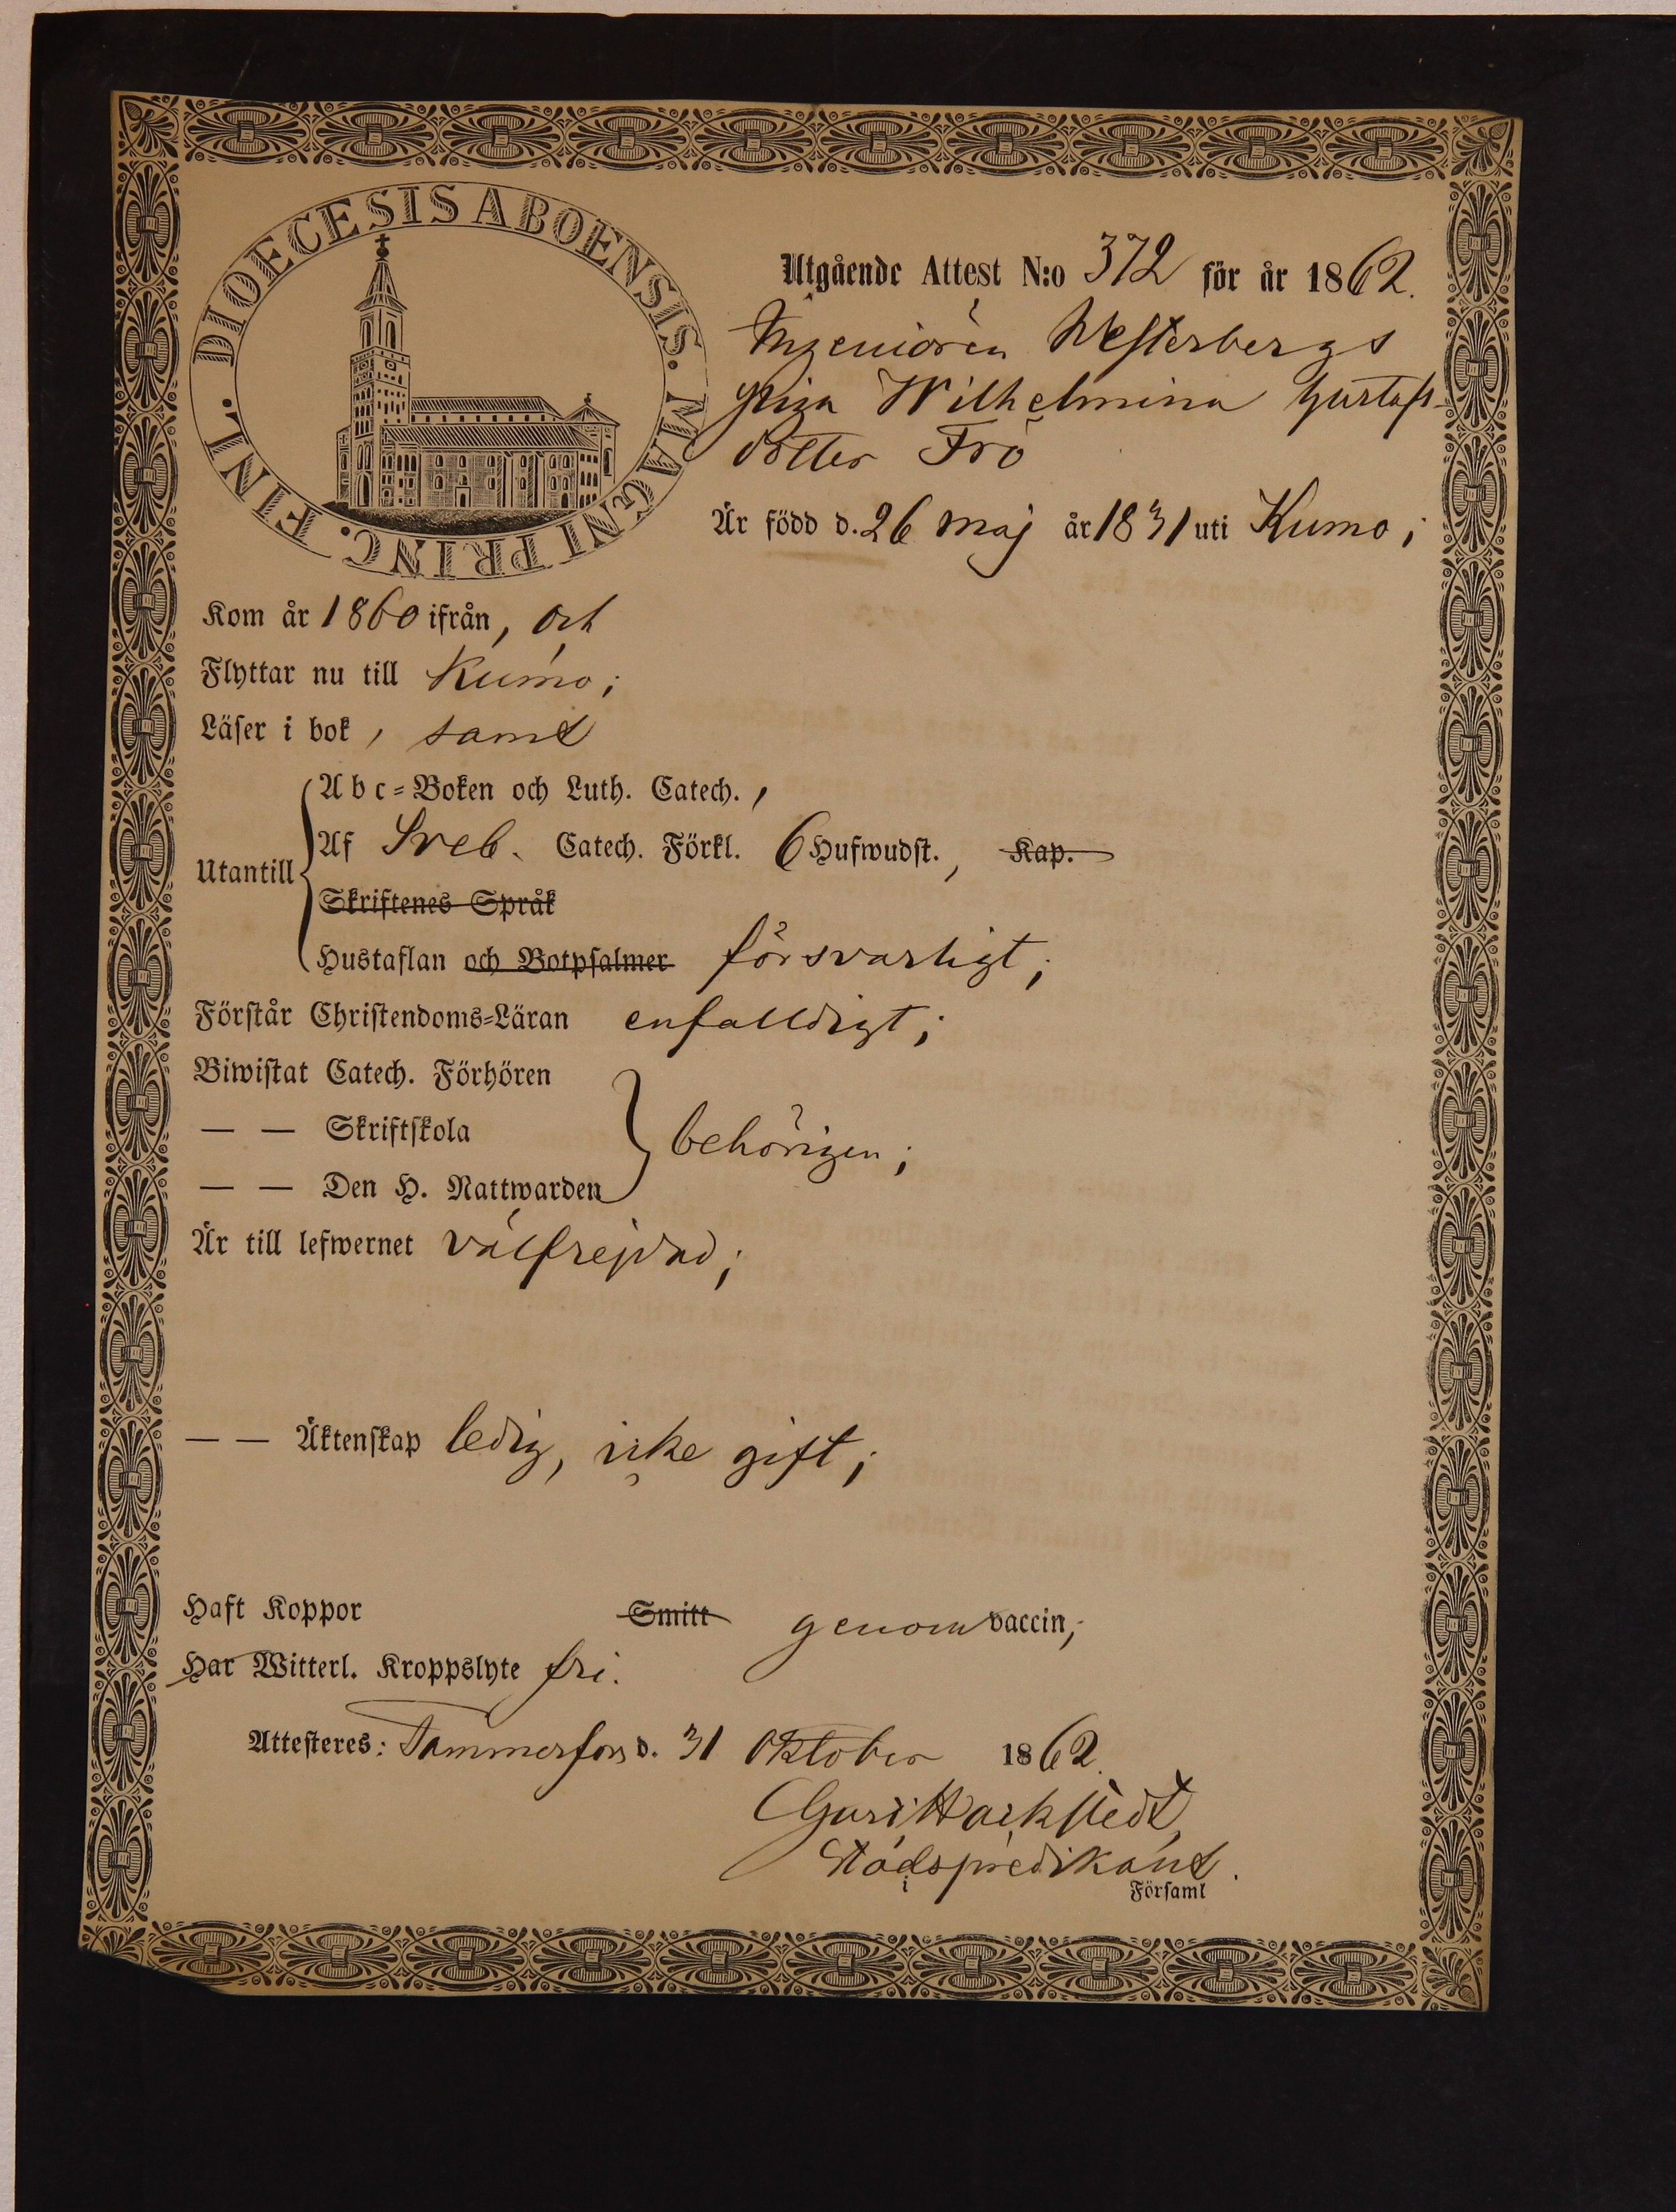 DIOECESIS ABOENSIS. MAGNI PRINC. FINL.
Utgående Attest N:o 372 för år 1862.
Ingeniören Westerbergs
Piga Wilhelmina Gustafs-
dotter Frö
Är född d. 26 Maj år 1831 uti Kumo;
Kom år 1860 ifrån, och
Flyttar nu till Kumo;
Läser i bok, samt
Utantill
Abc-Boken och Luth. Catech.,
Af Sveb. Catech. Förkl. 6 Hufwudst., Kap.
Skriftenes Språk
Hustaflan och Botpsalmer försvarligt;
Förstår Christendoms-Läran enfalldigt;
Biwistat Catech. Förhören
— — Skriftskola behörigen;
— — Den H. Nattwarden
Är till lefwernet välfrejdad;
— — Äktenskap ledig, icke gift;
Haft Koppor Smitt genom vaccin;
Har Witterl. Kroppslyte fri.
Attesteres: Tammerfors d. 31 Oktober 1862.
Stadspredikant.
i Församl